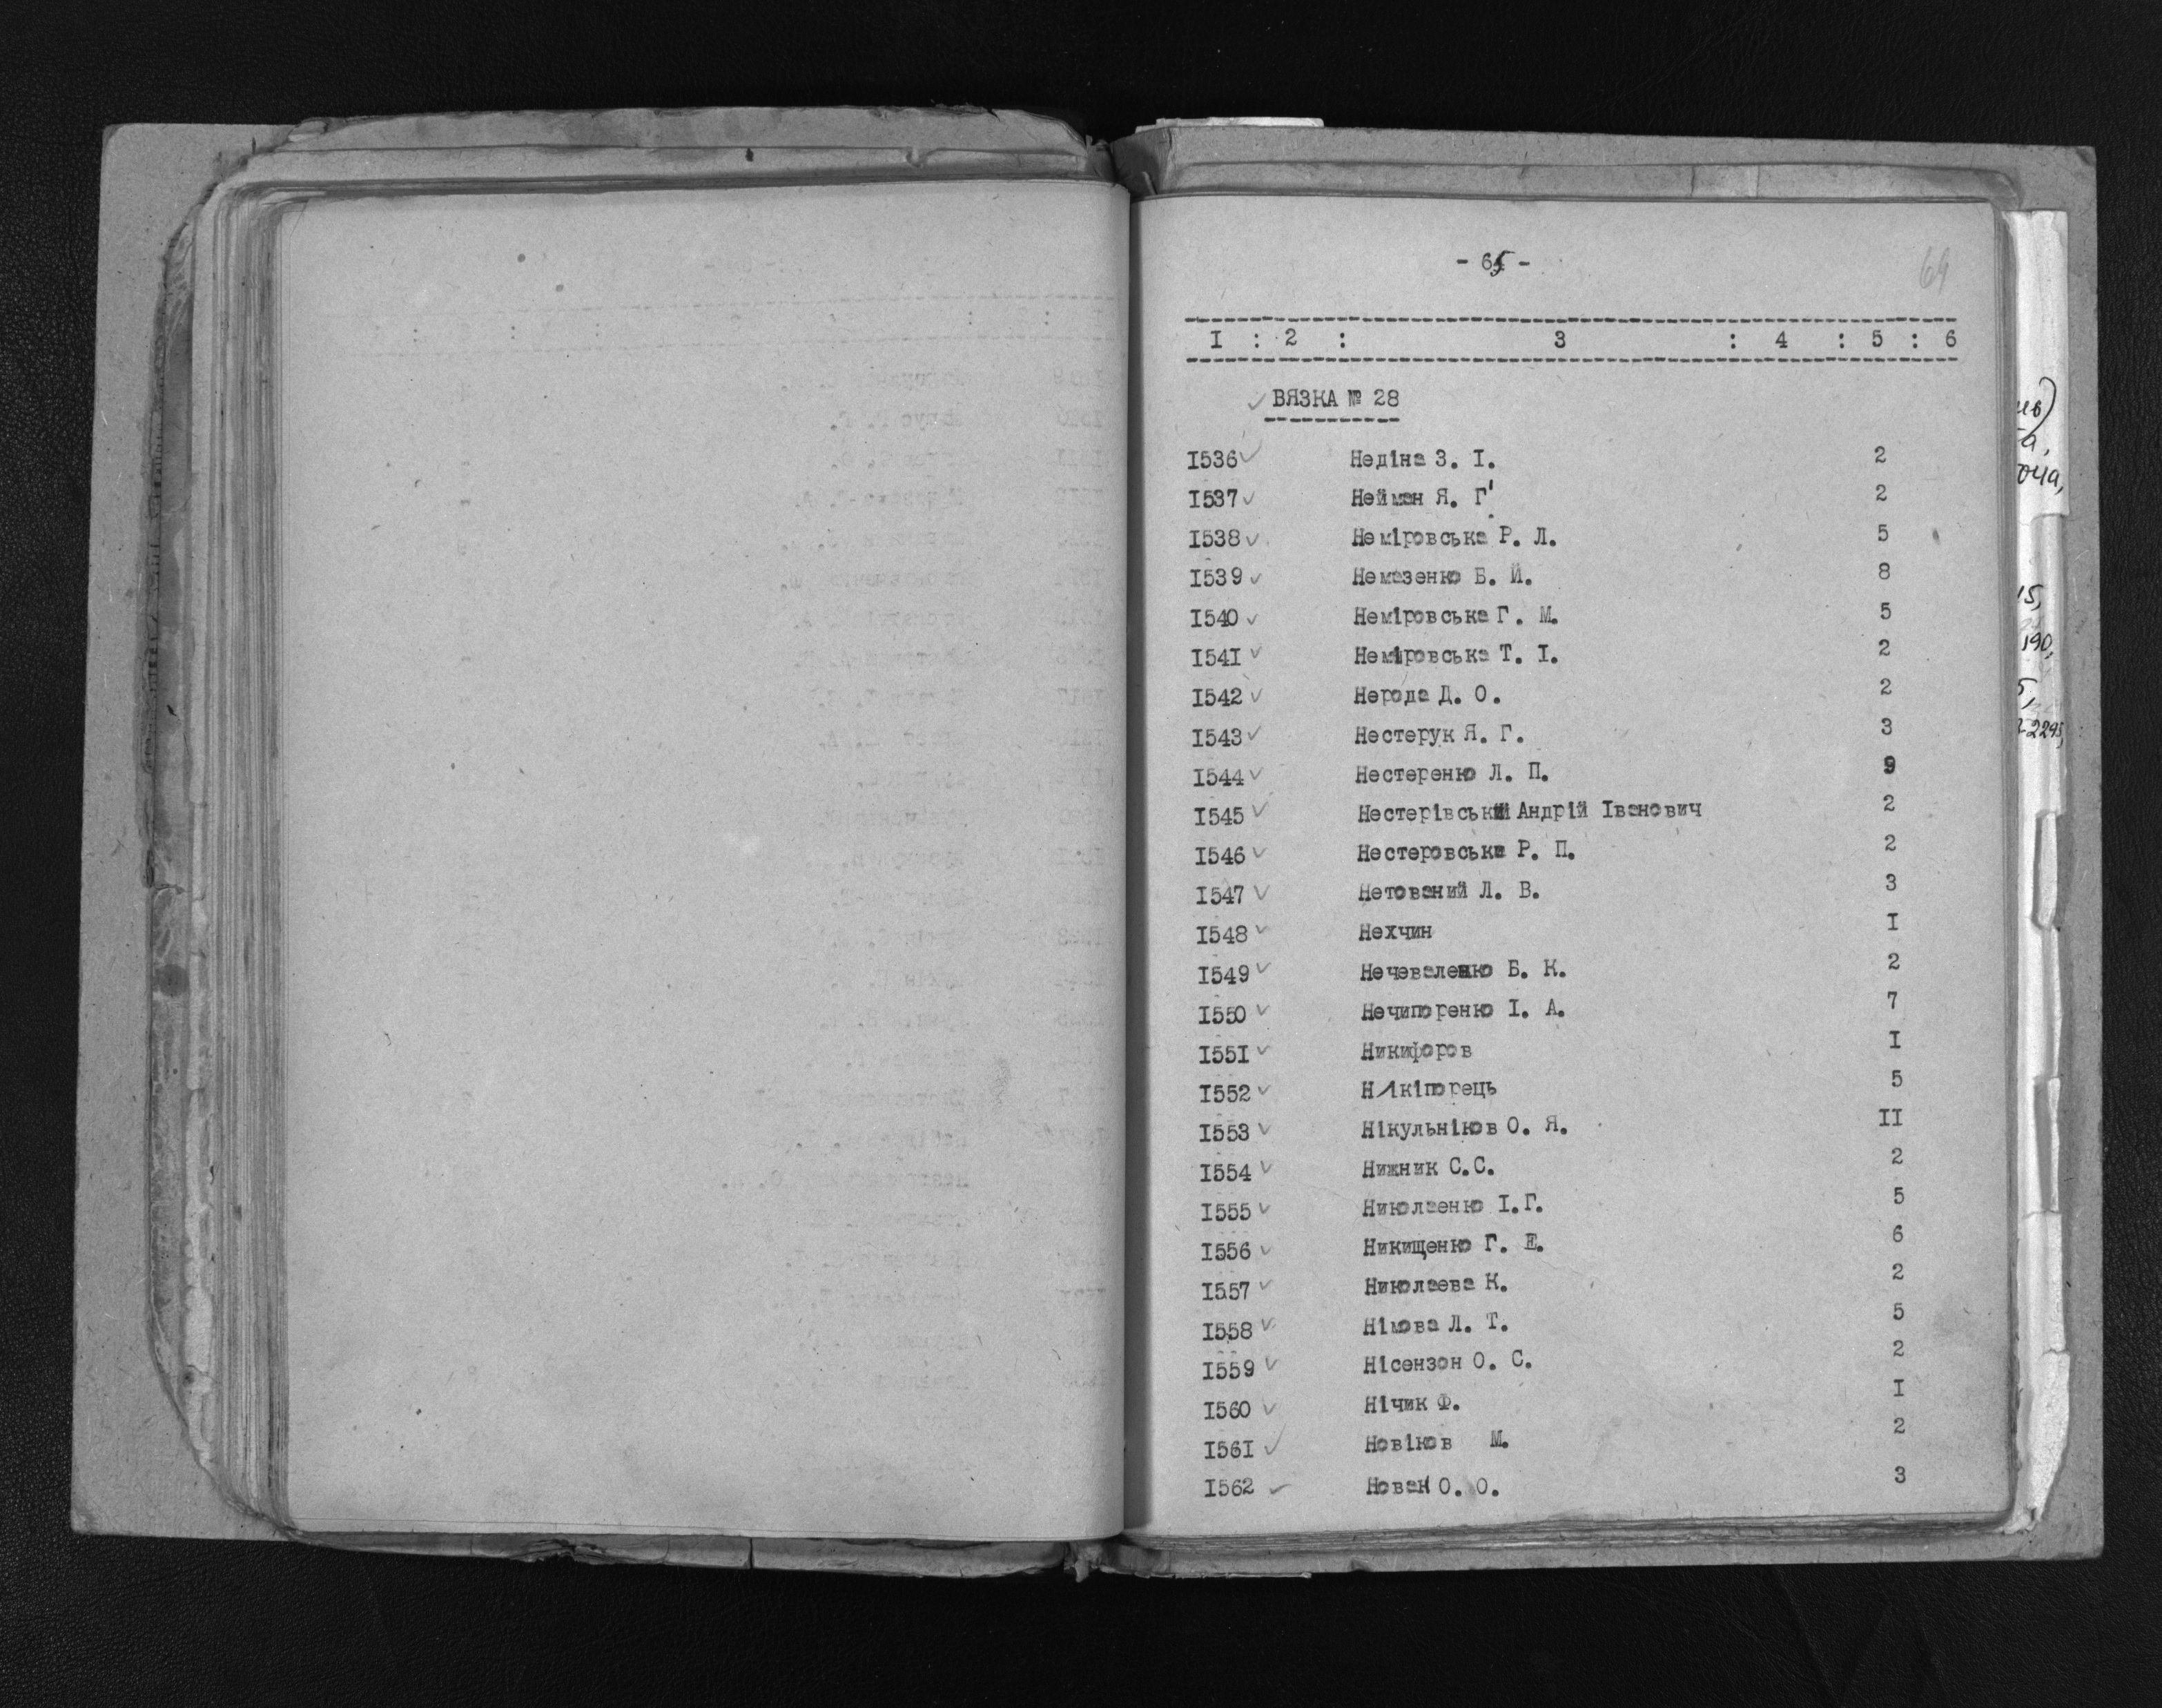 - 65 -
69
I : 2 : 3 : 4 : 5 : 6
ВЯЗКА № 28
I536 Недіна З. І. 2
I537 Нейман Я. Г. 2
I538 Неміровська Р. Л. 5
I539 Немазенко Б. Й. 8
I540 Неміровська Г. М. 5
I541 Неміровська Т. І. 2
I542 Нерода Д. О. 2
I543 Нестерук Я. Г. 3
I544 Нестеренко Л. П. 9
I545 Нестерівський Андрій Іванович 2
I546 Нестеровська Р. П. 2
I547 Нетований Л. В. 3
I548 Нехчин I
I549 Нечеваленко Б. К. 2
I550 Нечипоренко І. А. 7
I551 Никифоров I
I552 Нікіпорець 5
I553 Нікульніков О. Я. II
I554 Нижник С.С. 2
I555 Николаенко І.Г. 5
I556 Никищенко Г. Е. 6
I557 Николаева К. 2
I558 Німова Л. Т. 5
I559 Нісензон О. С. 2
I560 Нічик Ф. I
I561 Новіков М. 2
I562 Новак О. О. 3
15,
190,
5,
-2295,